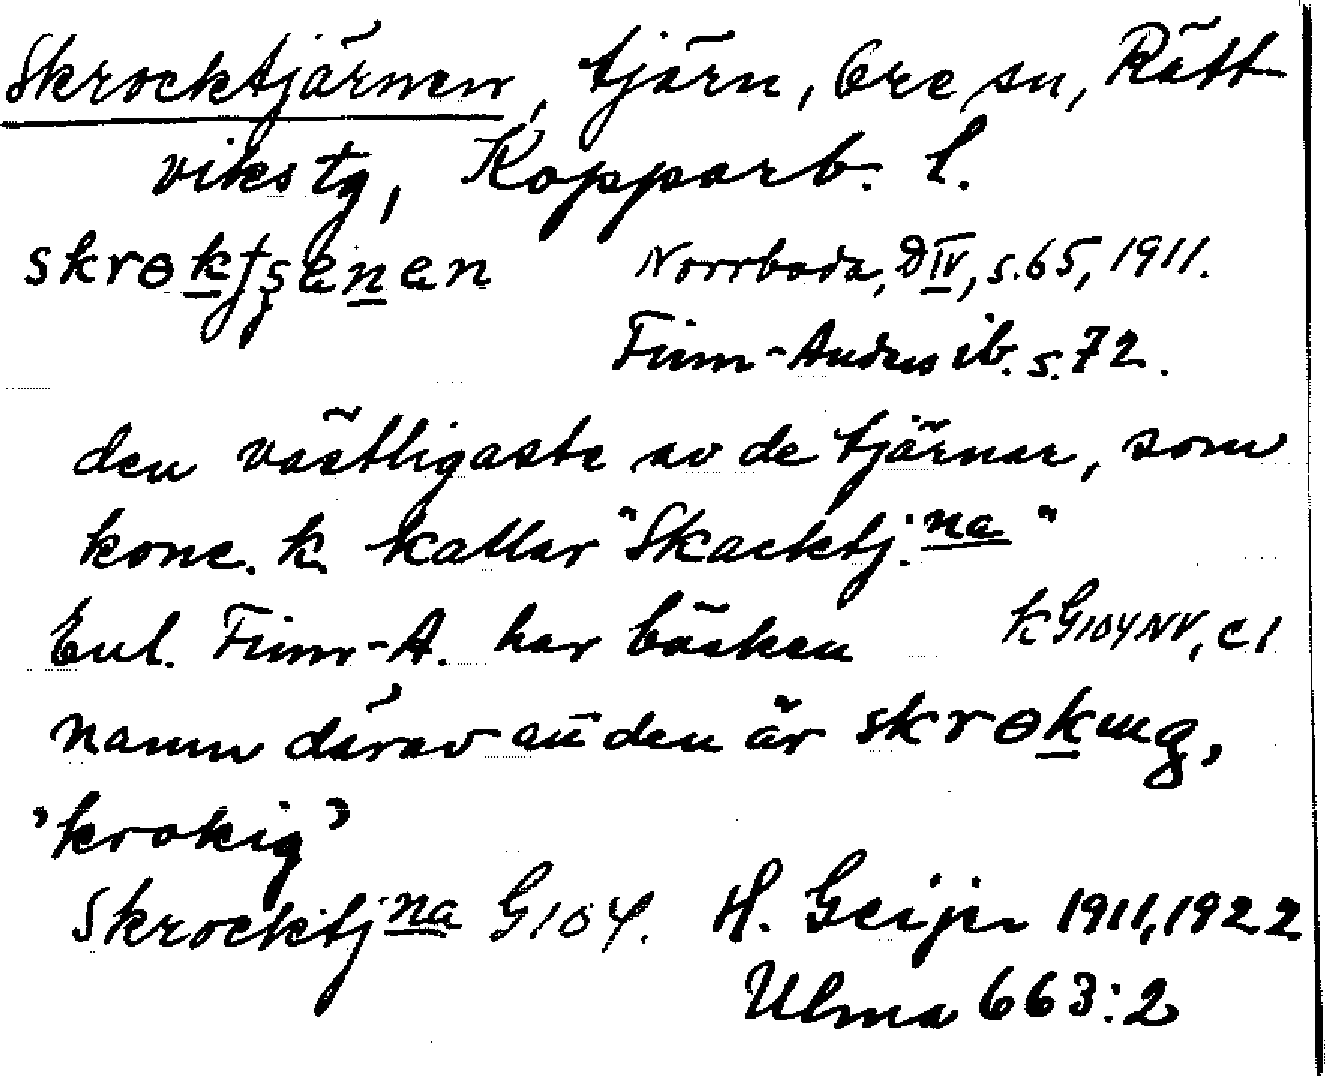 Skrocktjärnen, tjärn, Ore sn, Rätt
viks tg, Kopparb. l.
skrɵkʃşenen Norrboda, D IV, s.65, 1911.
Finn-Anders ib. s.72.
den västligaste av de tjärnar, som
konc. k. kallar "Skacktj:na"
Enl. Finn-A. har bäcken kG104NV, c1
namn därav att den är skrɵkug,
'krokig'
Skrocktj:na G104. H. Geijer 1911, 1922
Ulma 663:2